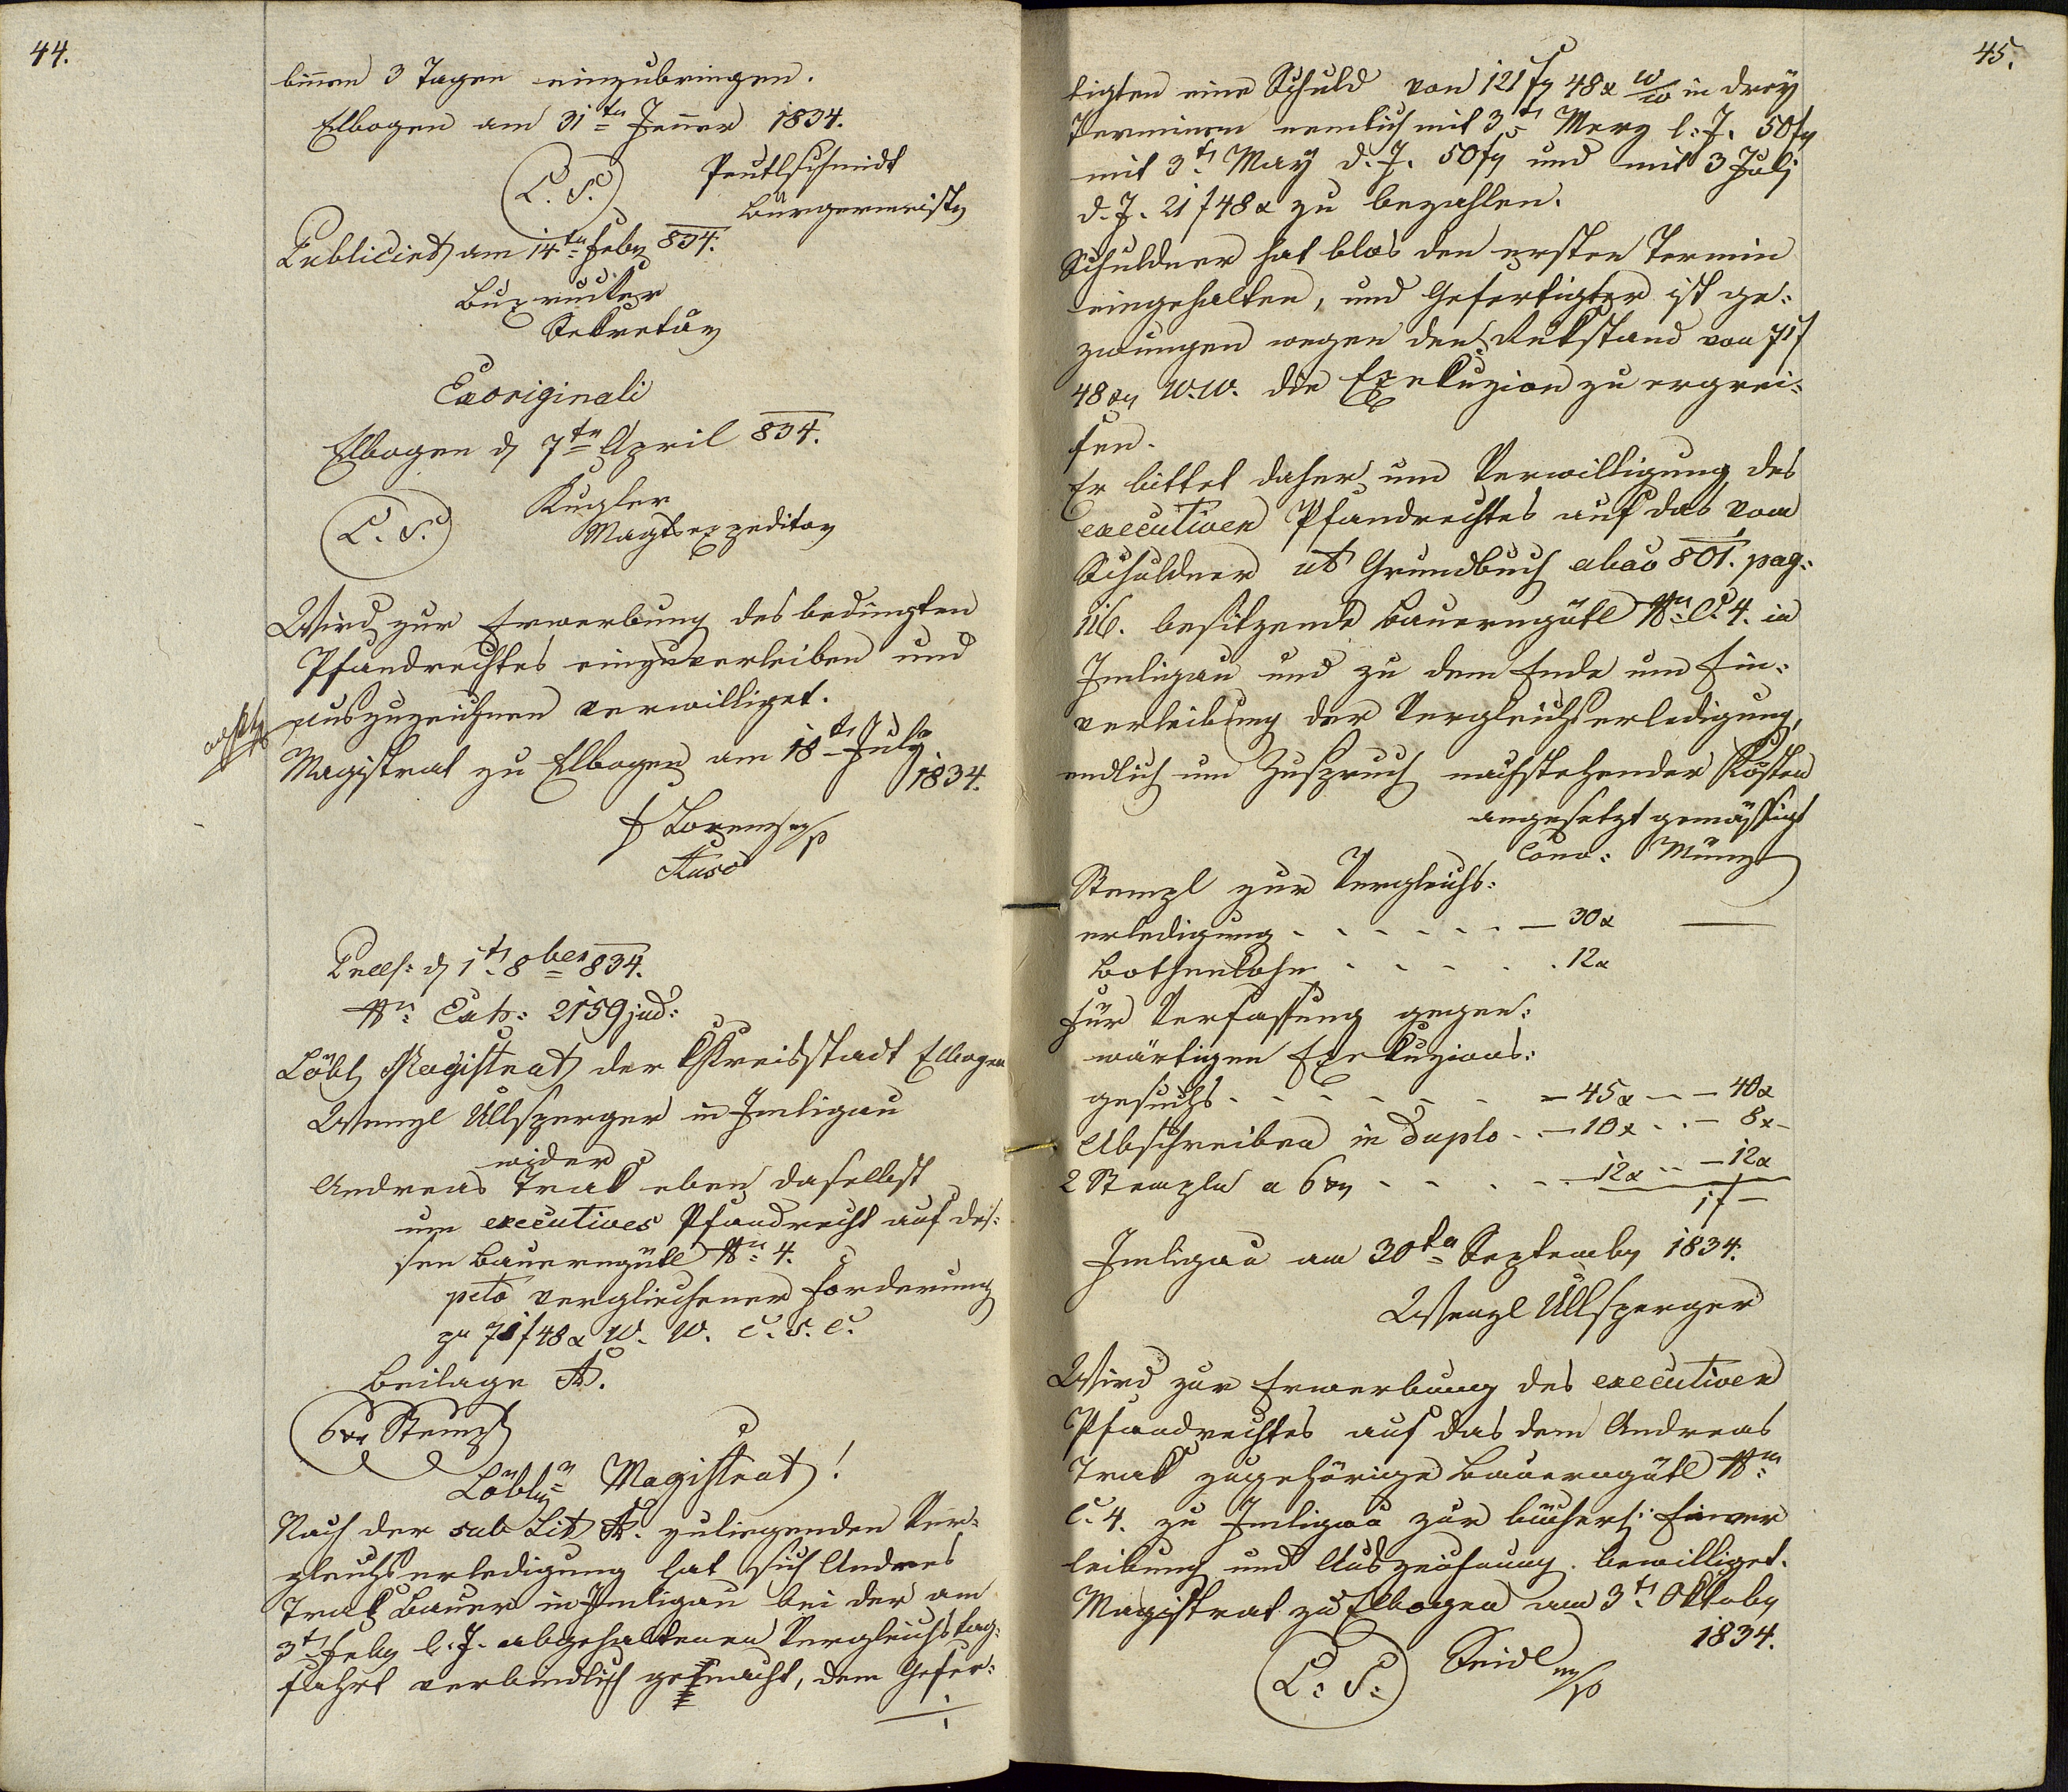 44.
binnen 3 Tagen einzubringen.
Elbogen am 31ten Jenner 1834.
L. S. Peutlschmidt
Bürgermeister
Publicirt am 14ten Feber 834.
Buxrucker
Sekretär
Ex originali
Elbogen d 7ten April 834.
L. S. Kugler
Magtsexpeditor
Wird zur Erwerbung des bedingten
Pfandrechtes einzuverleiben und
auszuzeichnen verwilliget.
Magistrat zu Elbogen am 18ten July
1834.
Lorenz mp
Praes: d 1ten 8ber 834.
Nr: Exh: 2159 jud:
Löbl Magistrat der Kreisstadt Elbogen
Wenzl Ullsperger in Imligau
wider
Andreas Trak eben daselbst
um executives Pfandrecht auf des-
sen Bauerngütl Nr: 4.
pcto verglichener Forderung
pr 71 f 48 x W. W. c. s. c.
Beilage A.
6 xr Stempl
Löblr Magistrat!
Nach der sub Lit A. zuliegenden Ver-
gleichserledigung hat sich Andreas
Trak Bauer in Imligau bei der am
3t Feber l. J. abgehaltenen Vergleichstag-
fahrt verbindlich gemacht, dem Gefer-
45.
tigten eine Schuld von 121 fr 48 x W/W in drey
Terminen nemlich mit 3t Merz l: J. 50 fr
mit 3t May d. J. 50 fr und mit 3 Juli
d. J. 21 f 48 x zu bezahlen.
Schuldner hat blos den ersten Termin
eingehalten, und Gefertigter ist ge-
zwungen wegen den Rükstand von 71 f
48 xr W. W. die Exekuzion zu ergrei-
fen.
Er bittet daher um Verwilligung des
executiven Pfandrechtes auf das vom
Schuldner ut Grundbuch abao 801. pag:
116. besitzende Bauerngütl Nr: C. 4. in
Imligau und zu dem Ende um Ein-
verleibung der Vergleichserledigung,
endlich um Zuspruch nachstehender Kosten
angesetzt gemässigt
Conv: Münz
Stempl zur Vergleichs:
erledigung - - - - - - — 30 x —
Bothenlohn - - - - . 12 x
für Verfassung gegen:
wärtigen Exekuzions:
gesuchs - - - - - - — 45 x - — 40 x
Abschreiben in duplo - — 10 x - — 8 x
2 Stempln a 6 xr - - - - 12 x - — 12 x
1 f —
Imligau am 30ten September 1834.
Wenzl Ullsperger
Wird zur Erwerbung des executiven
Pfandrechtes auf das dem Andreas
Trak zugehörige Bauerngütl Nr:
C. 4. zu Imligau zur bücherl: Einver
leibung und Auszeichnung bewilliget.
Magistrat zu Elbogen am 3t Oktober
1834.
L: S: Seidl mp